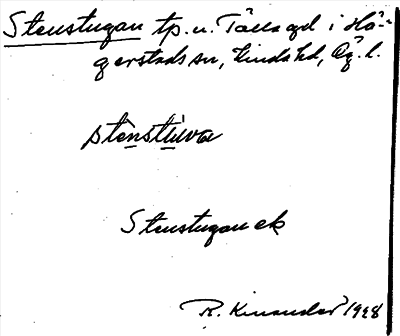 Stenstugan tp. u. Tälla gd i Hä-
gerstads sn, Kinda hd, Ög. l.
stènstùva
Stenstugan ek
R. Kinander 1928